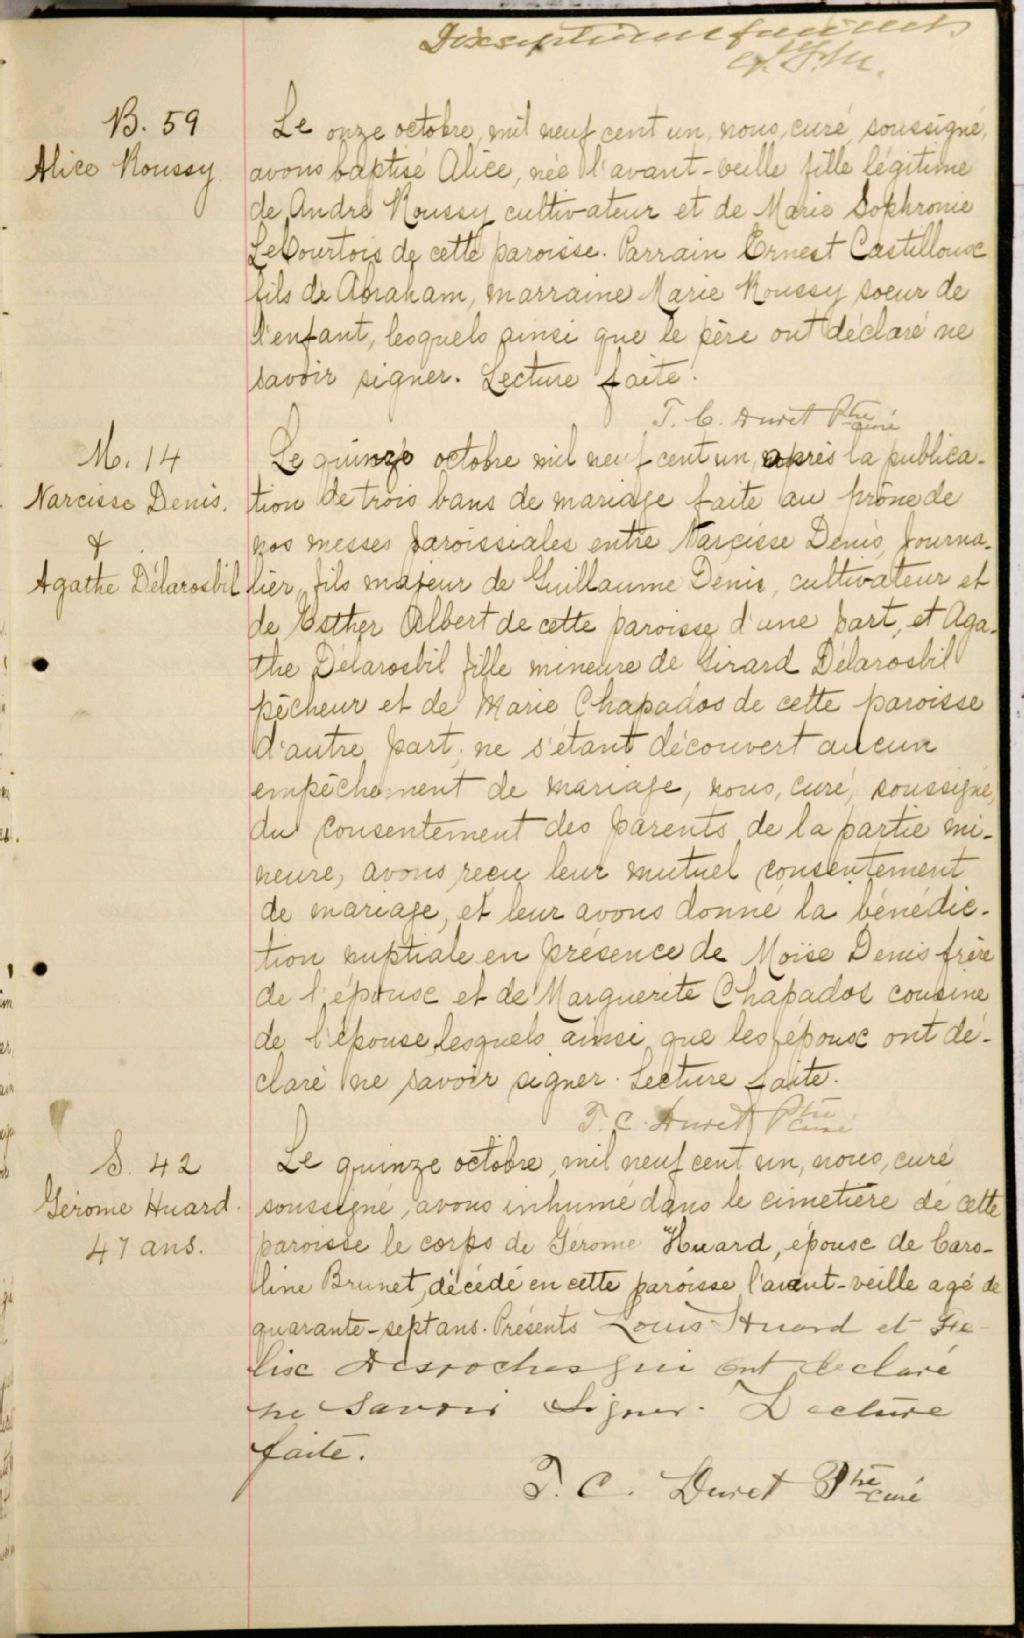 Dixseptième feuillet
B. 59
Alice Roussy
Le onze octobre, mil neuf cent un, nous, curé soussigné,
avons baptisé Alice, née l'avant-veille fille légitime
de André Roussy cultivateur et de Marie Sophronie
LeCourtois de cette paroisse. Parrain Ernest Castilloux
fils de Abraham, marraine Marie Roussy soeur de
l'enfant, lesquels ainsi que le père ont déclaré ne
savoir signer. Lecture faite.
T. C. Duret Ptre curé
M. 14
Narcisse Denis.
&
Agathe Délarosbil
Le quinze octobre mil neuf cent un, après la publica-
tion de trois bans de mariage faite au prône de
nos messes paroissiales entre Narcisse Denis, Journa-
lier, fils majeur de Guillaume Denis, cultivateur et
de Esther Albert de cette paroisse d'une part, et Aga-
the Délarosbil fille mineure de Girard Délarosbil
pêcheur et de Marie Chapados de cette paroisse
d'autre part; ne s'étant découvert aucun
empêchement de mariage, nous, curé, soussigné,
du consentement des parents de la partie mi-
neure, avons reçu leur mutuel consentement
de mariage, et leur avons donné la bénédic-
tion nuptiale en présence de Moïse Denis frère
de l'épouse et de Marguerite Chapados cousine
de l'épouse, lesquels ainsi que les époux ont dé-
claré ne savoir signer. Lecture faite.
T. C. Duret Ptre curé
S. 42
Gérome Huard.
47 ans.
Le quinze octobre, mil neuf cent un, nous, curé
soussigné, avons inhumé dans le cimetière de cette
paroisse le corps de Gérome Huard, époux de Caro-
line Brunet, décédé en cette paroisse l'avant-veille agé de
quarante-sept ans. Présents Louis Huard et Fé-
lix Desroches qui ont declaré
ne savoir signer. Lecture
faite.
T. C. Duret Ptre curé